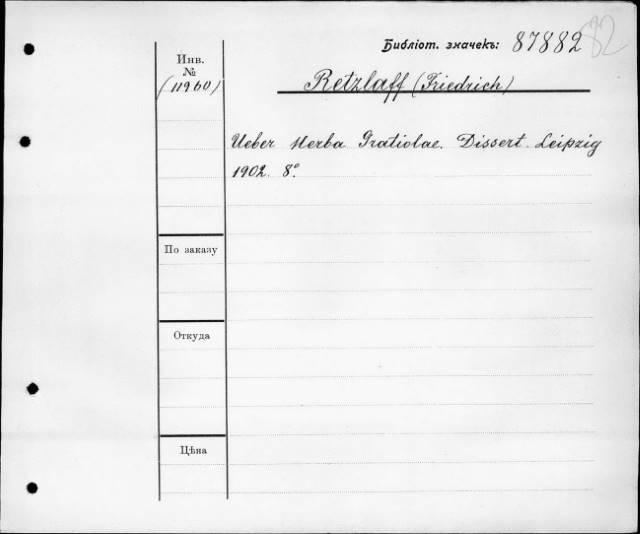 Библіот. значекъ: 87882
82
Инв.
№
(11960)
Retzlaff (Friedrich)
Ueber Herba Gratiolae. Dissert. Leipzig
1902. 8°.
По заказу
Откуда
Цѣна